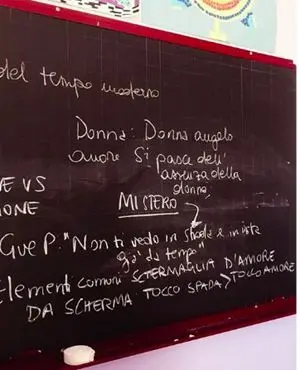 del tempo moderno
Donna: Donna angelo
amore si pasce dell'
assenza della
donna
E VS
IONE
MISTERO
Gue P: "Non ti vedo in strade e in vita
già di tempo"
Elementi comuni SCTERMAGLIA D'AMORE
DA SCHERMA TOCCO SPADA > TOCCO AMORE